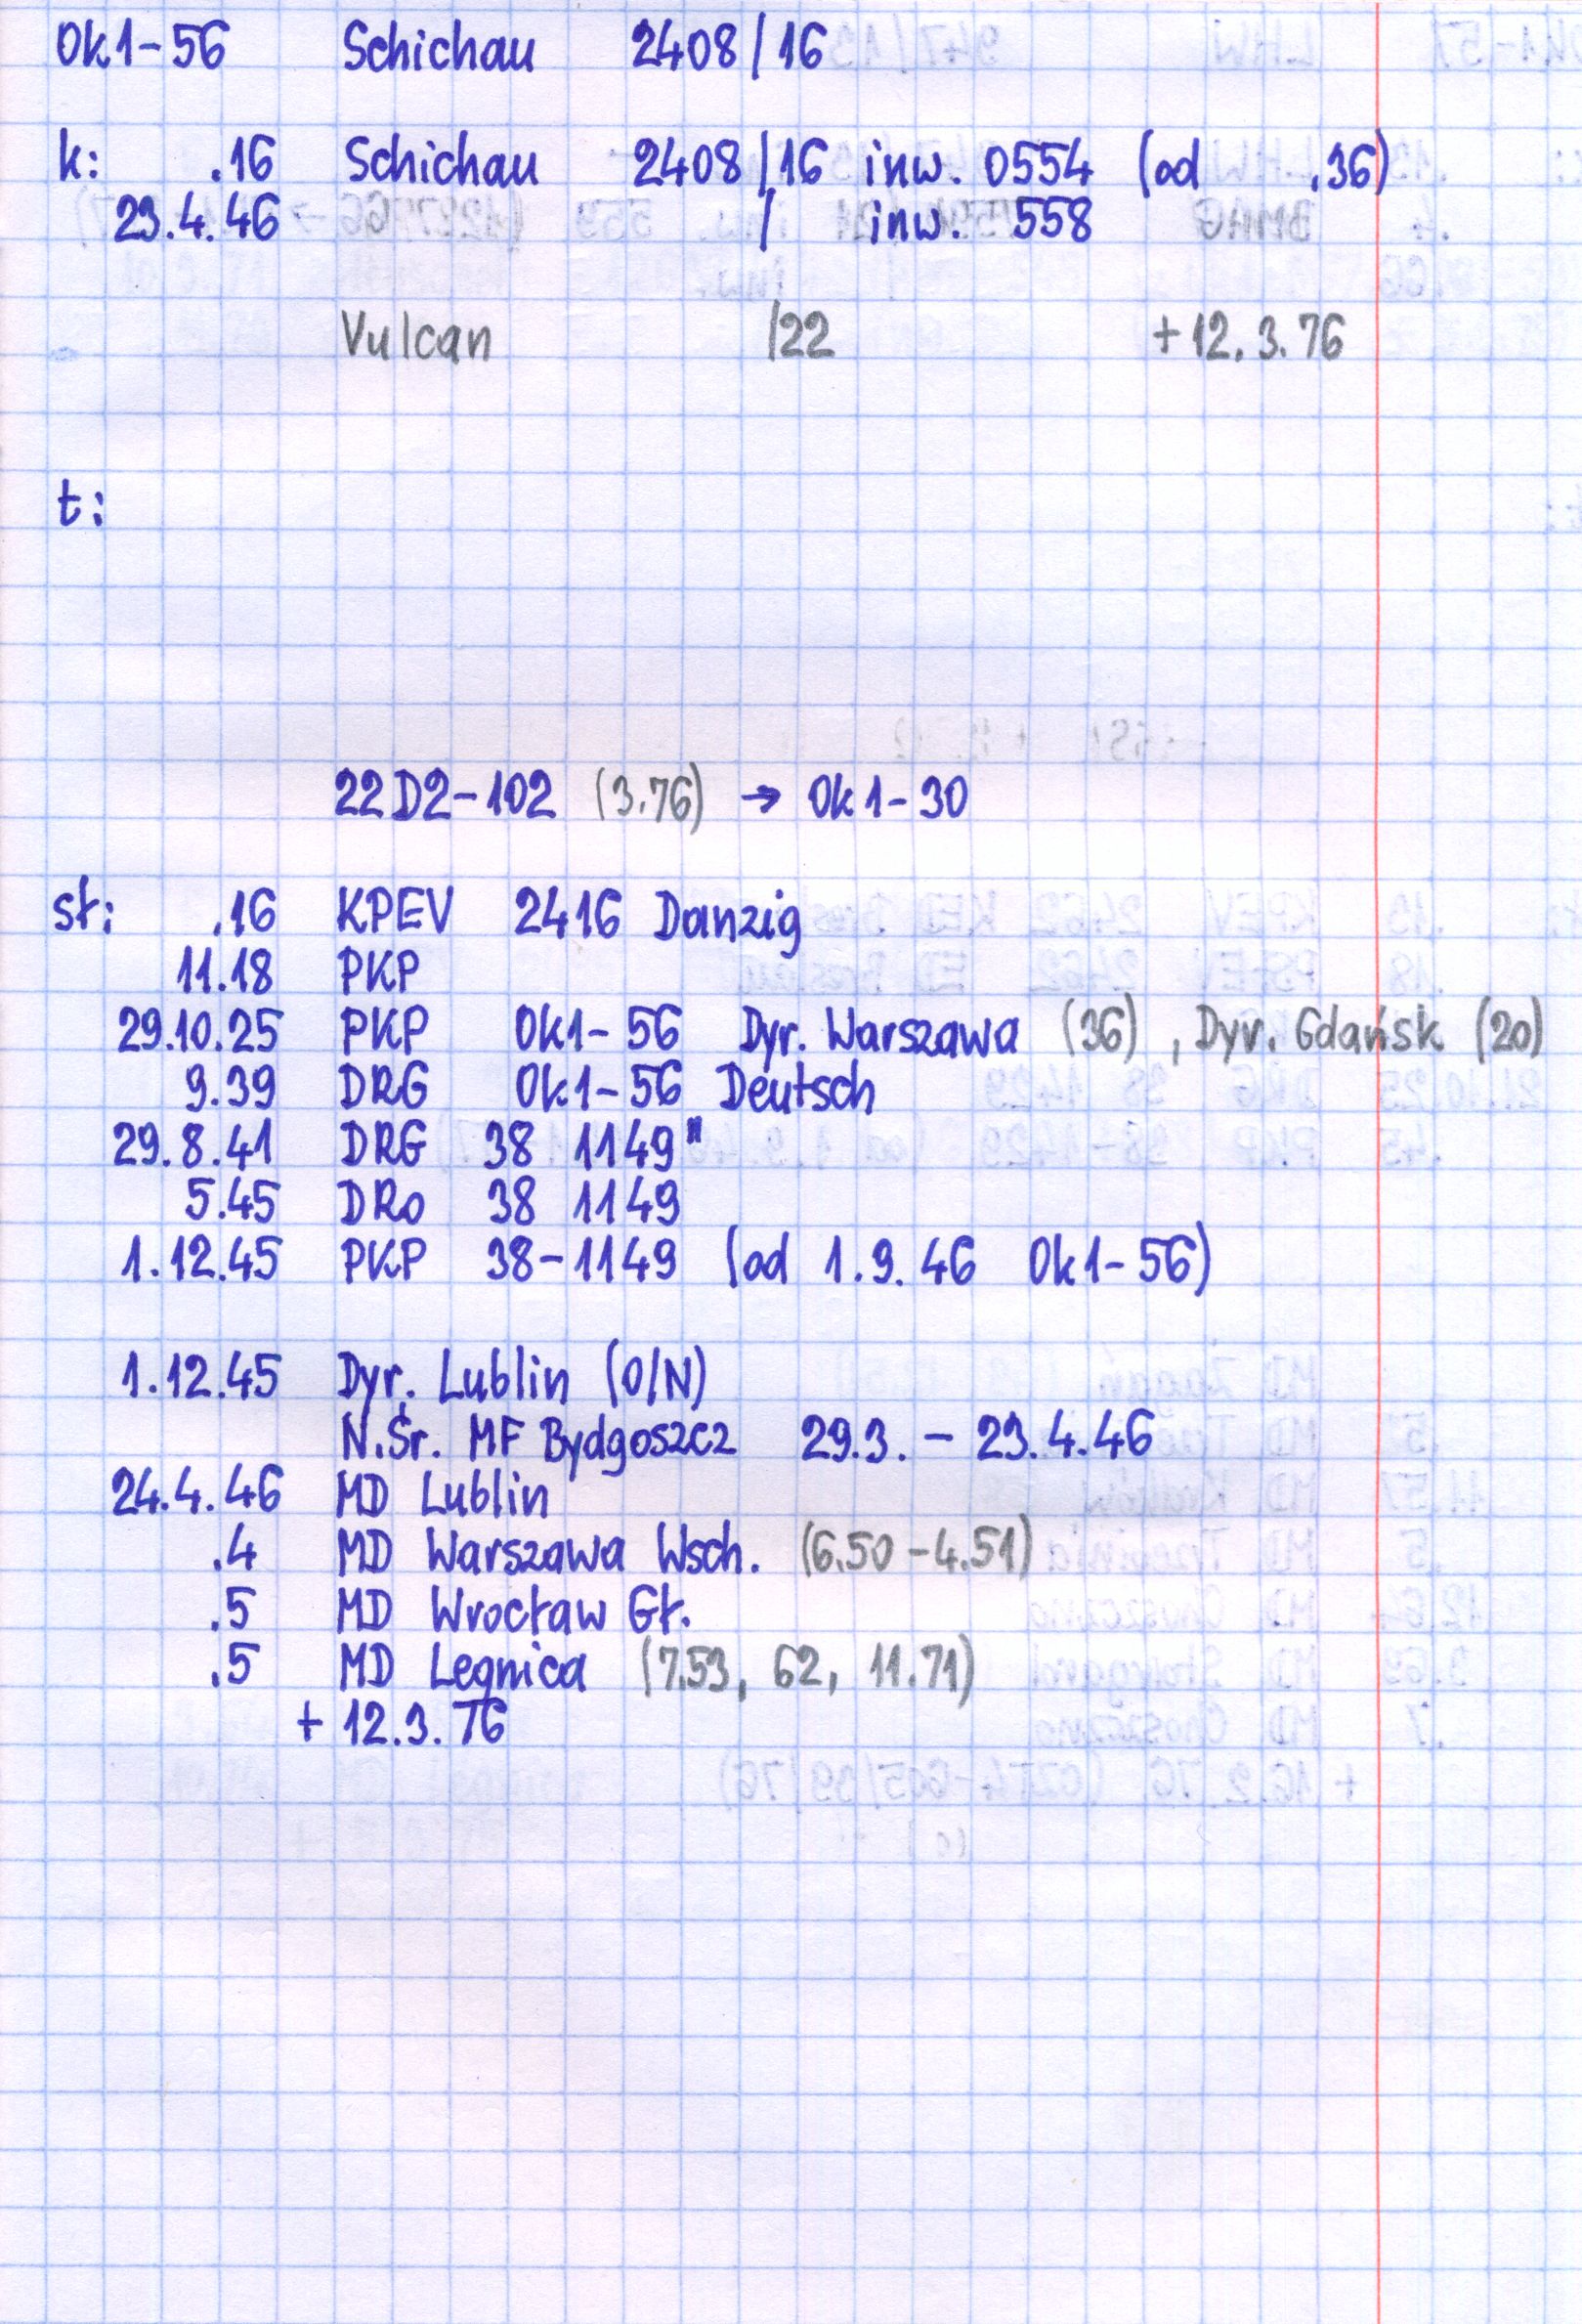 Ok1-56 Schichau 2408/16
k: .16 Schichau 2408/16 inw. 0554 (od .36)
23.4.46 / inw. 558
Vulcan /22 +12.3.76
t:
22D2-102 (3.76) → Ok1-30
st: .16 KPEV 2416 Danzig
11.18 PKP
29.10.25 PKP Ok1-56 Dyr. Warszawa (36), Dyr. Gdańsk (20)
9.39 DRG Ok1-56 Deutsch
29.8.41 DRG 38 1149"
5.45 DRo 38 1149
1.12.45 PKP 38-1149 (od 1.9.46 Ok1-56)
1.12.45 Dyr. Lublin (O/N)
N.Śr. MF Bydgoszcz 29.3. - 23.4.46
24.4.46 MD Lublin
.4 MD Warszawa Wsch. (6.50-4.51)
.5 MD Wrocław Gł.
.5 MD Legnica (7.53, 62, 11.71)
+ 12.3.76